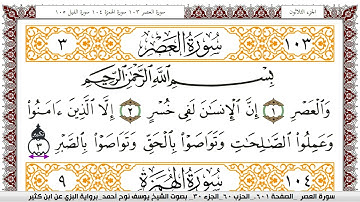 الجزء الثلاثون سورة العصر ١٠٣ سورة الهمزة ١٠٤ سورة الفيل ١٠٥
١٠٣ سُورَةُ الْعَصْرِ ٣
بِسْمِ اللَّهِ الرَّحْمَٰنِ الرَّحِيمِ
وَالْعَصْرِ ١ إِنَّ الْإِنسَٰنَ لَفِى خُسْرٍ ٢ إِلَّا الَّذِينَ ءَامَنُوا
وَعَمِلُوا الصَّٰلِحَٰتِ وَتَوَاصَوْا بِالْحَقِّ وَتَوَاصَوْا بِالصَّبْرِ ٣
١٠٤ سُورَةُ الْهُمَزَةِ ٩
سورة العصر _الصفحة ٦٠١_ الحزب ٦٠_الجزء ٣٠_ بصوت الشيخ يوسف نوح أحمد برواية البزي عن ابن كثير